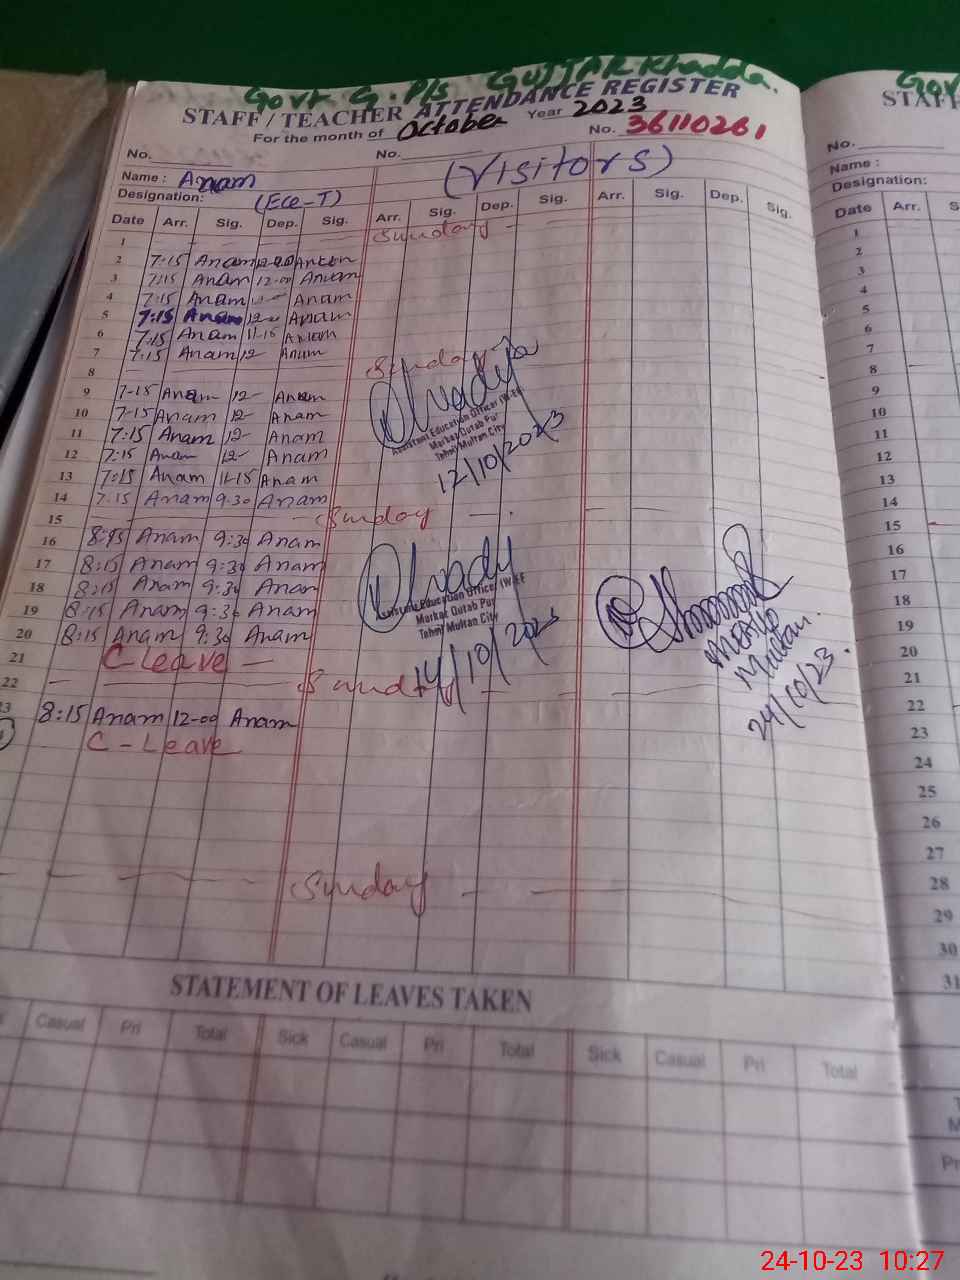 Govt. G. P/s GUJJAR Khadda.
STAFF / TEACHER ATTENDANCE REGISTER
For the month of October Year 2023
No. 36110261
No. No.
Name : Anam (Visitors)
Designation: (ECE-T)
Date Arr. Sig. Dep. Sig. Arr. Sig. Dep. Sig. Arr. Sig. Dep. Sig.
1 Sunday
2 7:15 Anam 12-00 Anam
3 7:15 Anam 12-00 Anam
4 7:15 Anam Anam
5 7:15 Anam 12- Anam
6 7:15 Anam 11-15 Anam
7 7:15 Anam 12- Anam
8 Sunday
9 7-15 Anam 12- Anam
10 7-15 Anam 12- Anam
11 7:15 Anam 12- Anam
12 7:15 Anam 12- Anam
13 7:15 Anam 11-15 Anam
14 7.15 Anam 9.30 Anam
Assistant Education Officer (W-EE
Markaz Qutab Pur
Tehsil Multan City
12/10/2023
15 Sunday
16 8:15 Anam 9:30 Anam
17 8:15 Anam 9:30 Anam
18 8:15 Anam 9:30 Anam
19 8:15 Anam 9:30 Anam
20 8:15 Anam 9:30 Anam
Assistant Education Officer (W-EE
Markaz Qutab Pur
Tehsil Multan City
14/10/2023
Multan.
24/10/23.
21 C-Leave
22 Sunday
23 8:15 Anam 12-00 Anam
C-Leave
Sunday
STATEMENT OF LEAVES TAKEN
Casual Pri Total Sick Casual Pri Total Sick Casual Pri Total
Gov
STAFF
No.
Name :
Designation:
Date Arr. S
1
2
3
4
5
6
7
8
9
10
11
12
13
14
15
16
17
18
19
20
21
22
23
24
25
26
27
28
29
30
31
24-10-23 10:27